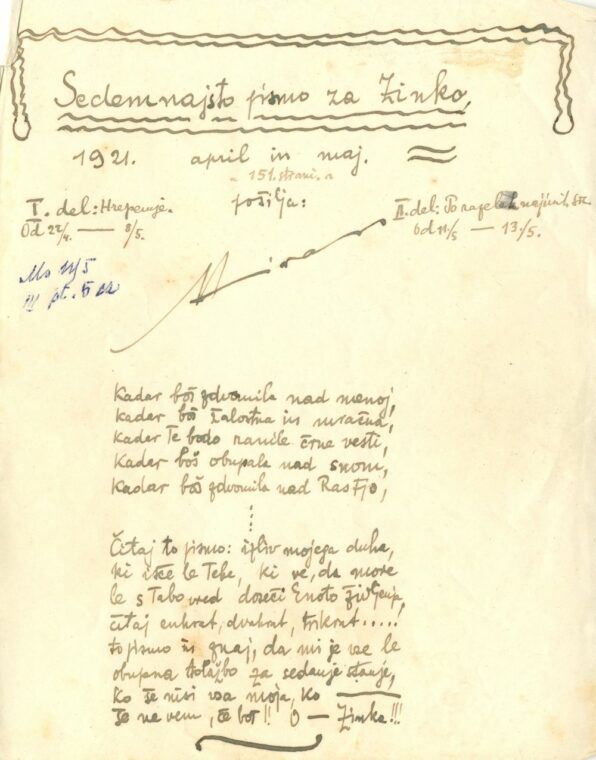 Sedemnajsto pismo za Zinko,
1921. april in maj.
„ 151. strani. "
I. del: Hrepenenje.
Od 22/4. — 8/5.
pošilja:
II. del: Po
Od 11/5 — 13/5.
Kadar boš zdvomila nad menoj,
kadar boš žalostna in mračna,
kadar Te bodo ranile črne vesti,
kadar boš obupala nad snom,
kadar boš zdvomila nad Rasfjo,
Čitaj to pismo: izliv mojega duha,
ki išče le Tebe, ki ve, da more
le s Tabo vred doseči Enoto
čitaj enkrat, dvakrat, trikrat.....
to pismo in znaj, da mi je vse le
obupna tolažbo za sedanje stanje,
ko še nisi vsa moja, ko
še ne vem, če boš!! O — Zinka!!!